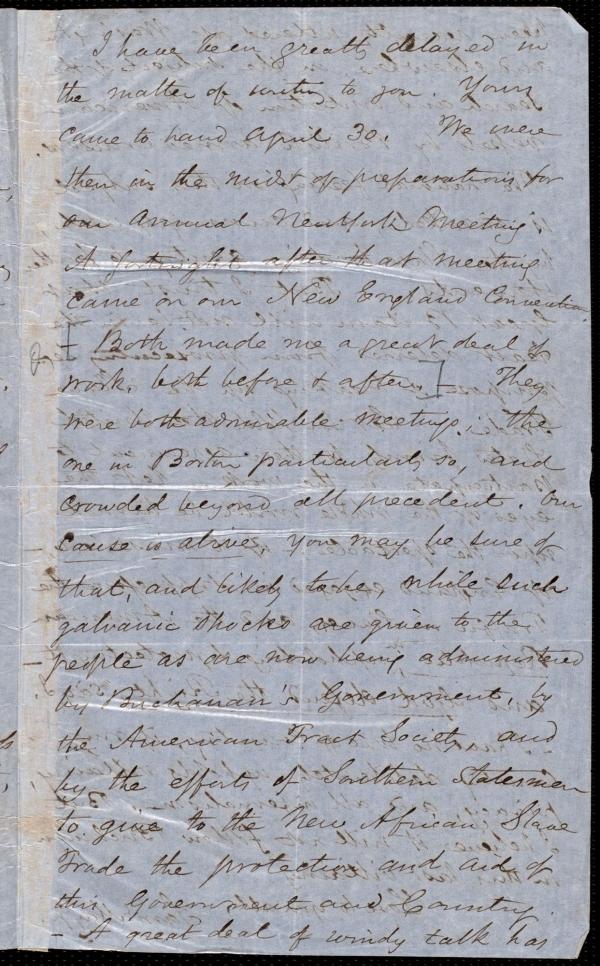 I have been greatly delayed in
the matter of writing to you. Yours
came to hand April 30. We were
then in the midst of preparations for
our Annual New York Meeting
A fortnight after that meeting
came on our New England Convention.
[- Both made me a great deal of
work, both before & after.]- They
were both admirable meetings; the
one in Boston particularly so, and
crowded beyond all precedent. Our
cause is alive, you may be sure of
that, and likely to be, while such
galvanic shocks are given to the
people as are now being administered
by Buchanan's Government, by
the American Tract Society and
by the efforts of Southern Statesmen
to give to the New African Slave
Trade the protection and aid of
this Government and Country.
- A great deal of windy talk has